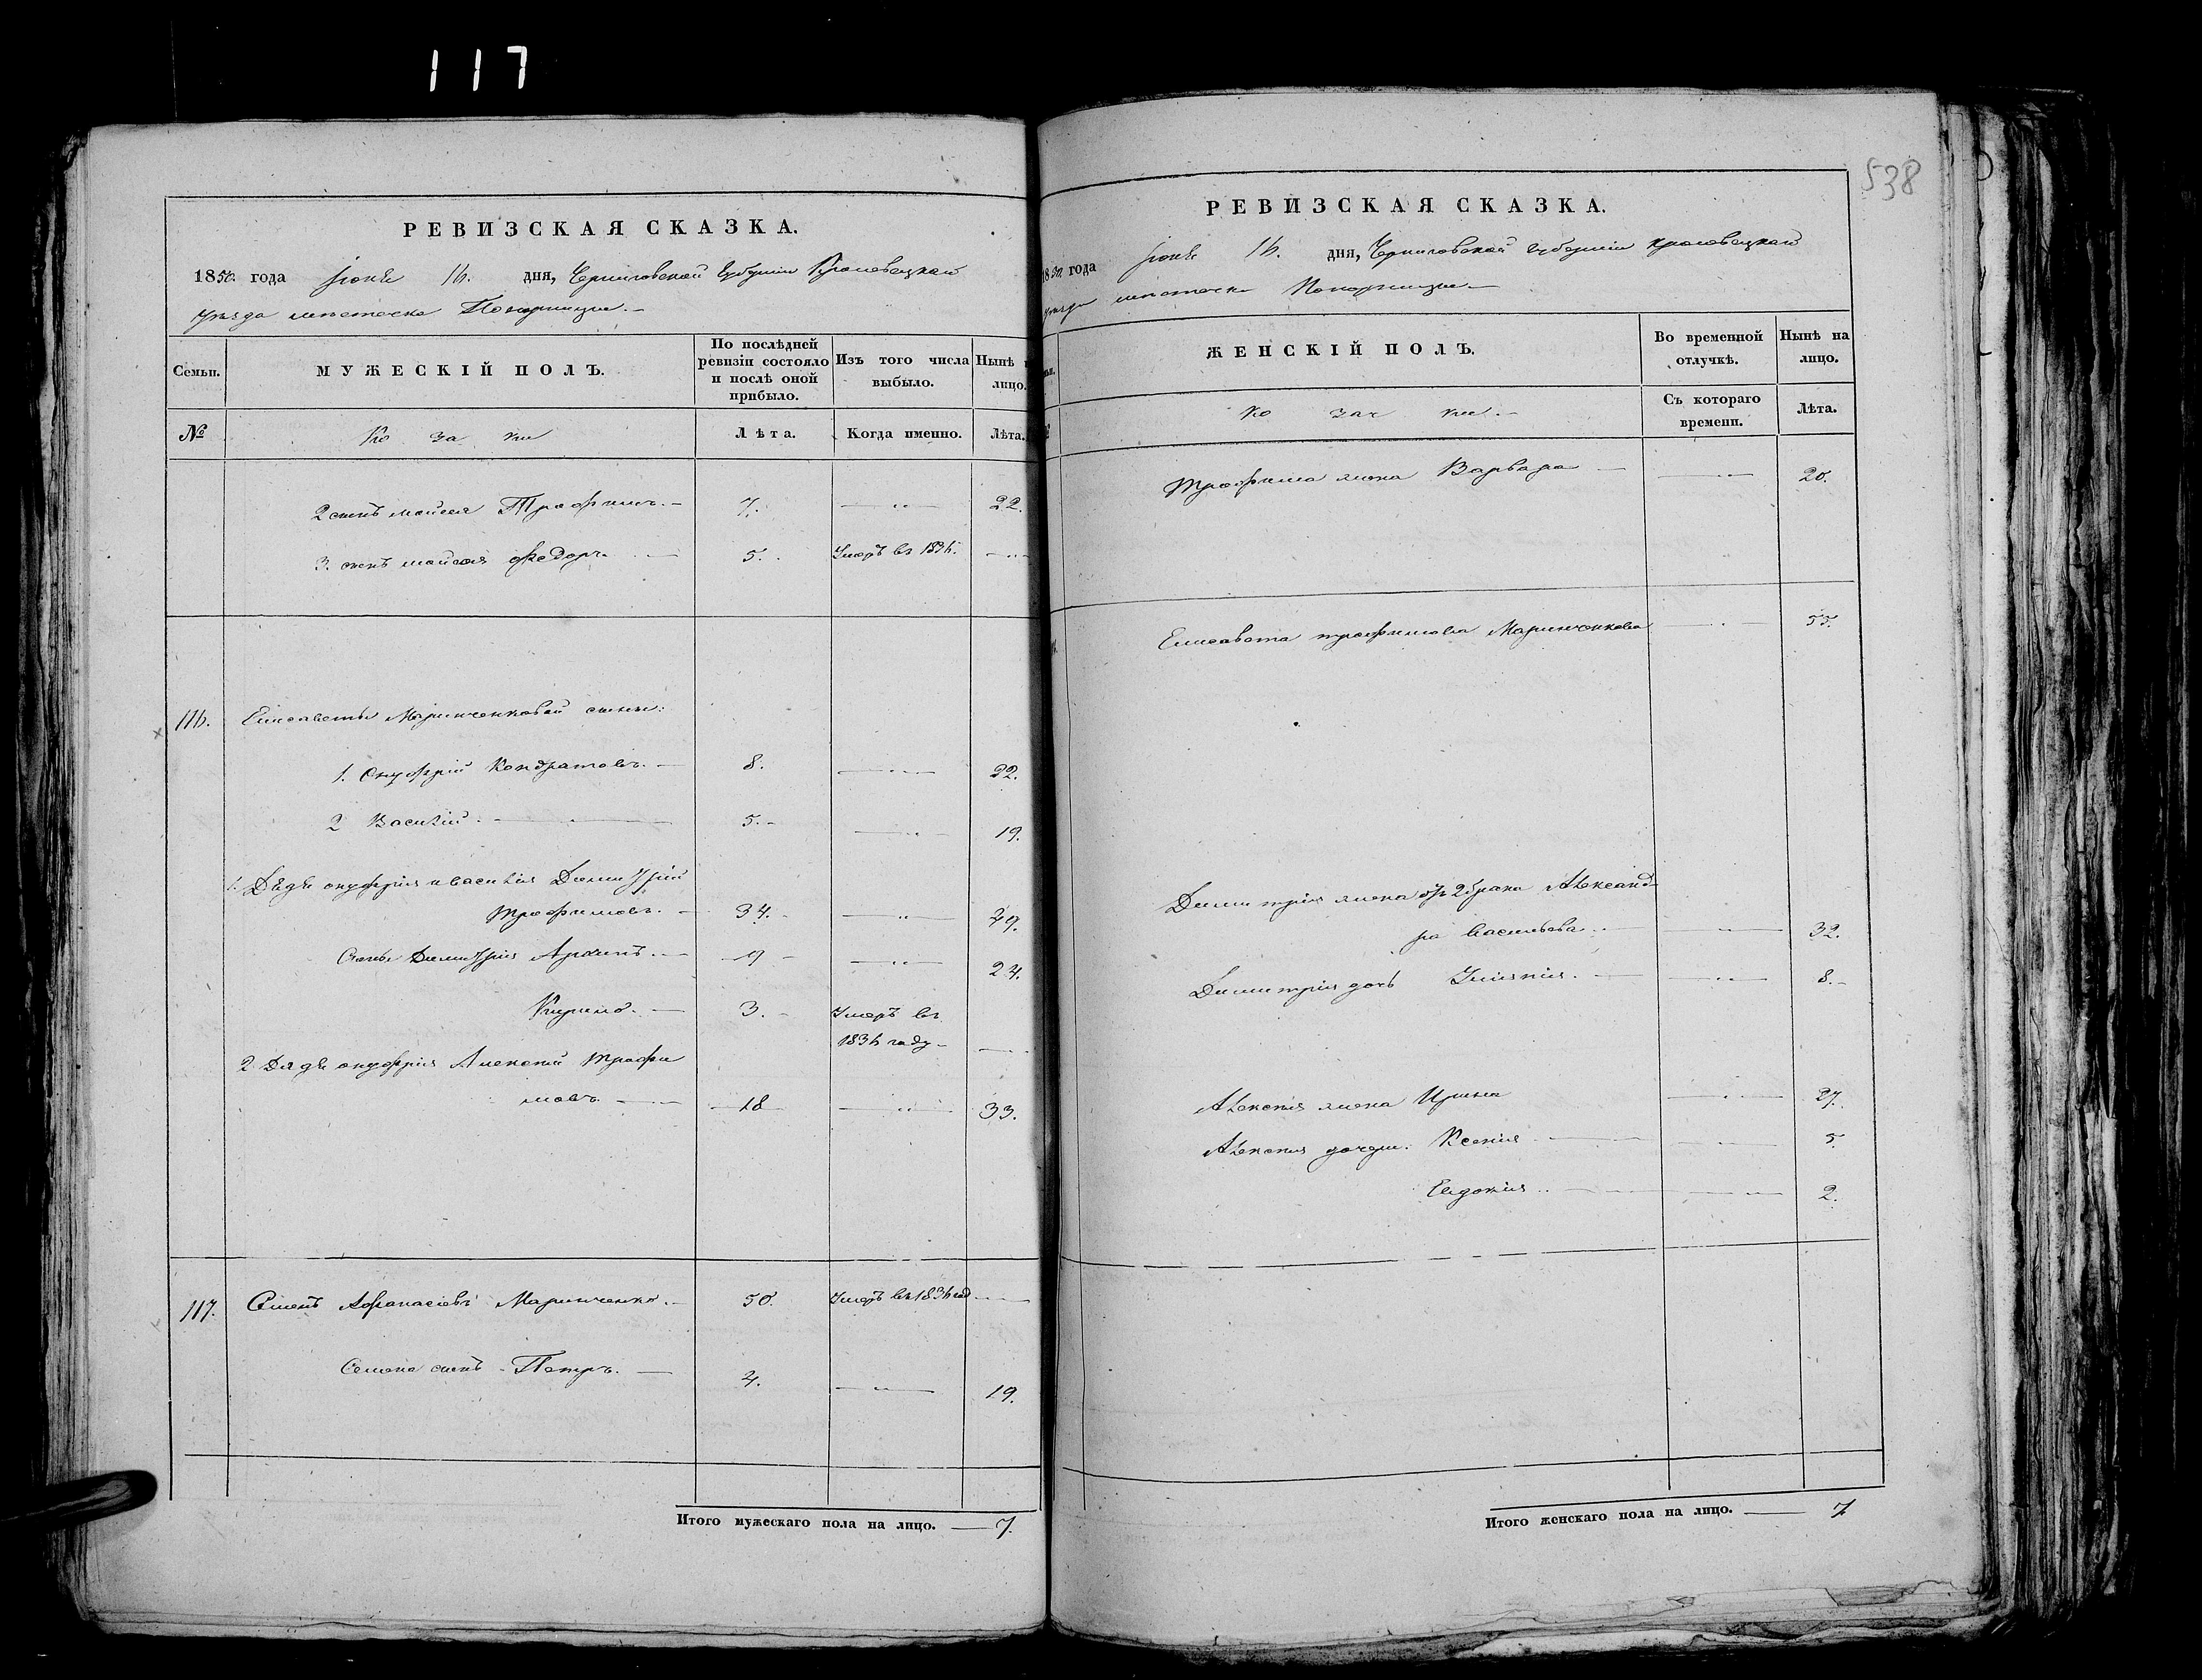 117
538
РЕВИЗСКАЯ СКАЗКА.
1850. года Іюня 16. дня, Черниговской Губерніи Кролевецкаго
уезда местечка Понорницы. —
Семьи. МУЖЕСКІЙ ПОЛЪ. По послѣдней ревизіи состояло и послѣ оной прибыло. Изъ того числа выбыло. Нынѣ лицо.
№ Ко за ки Лѣта. Когда именно. Лѣта.
2 сынъ Моисея Трофимъ. — 7. — „ — 22.
3. сынъ Моисея Федоръ. — 5. Умеръ въ 1836. — „ —
116. Елисаветы Маринченковой сыны:
1. Онуфрій Кондратовъ. — 8. — „ — 22.
2 Василій. — 5. — — „ — 19.
1. Дядя онуфрія и василія Димитрій
Трофимовъ. — 34. — — „ — 49.
Сыны Димитрія Архипъ. — 9 — — „ — 24.
Кирило. — 3. — Умеръ въ
1836 году — — „
2 Дядя онуфрія Алексей Трофи
мовъ — 18 — „ — 33.
117. Семенъ Афанасіевъ Маринченко. — 50. Умеръ въ 1836 год —
Семена сынъ Петръ. — 4. — „ — 19.
Итого мужескаго пола на лицо. — 7.
РЕВИЗСКАЯ СКАЗКА.
1850. года Іюня 16. дня, Черниговской Губерніи Кролевецкаго
уезда местечка Понорницы —
ЖЕНСКІЙ ПОЛЪ. Во временной отлучкѣ. Нынѣ на лицо.
Ко зач ки. — Съ котораго времени. Лѣта.
Трофима жена Варвара — — „ — 20.
Елисавета трофимова Маринченкова — „ — 55.
Димитрія жена отъ 2 брака Александ-
ра Васильева. — — „ — 32.
Димитрія дочь — — „ — 8. —
Алексея жена Ирина — „ — 27.
Алексея дочери. Ксенія — — „ — 5.
Евдокія .. — — „ — 2.
Итого женскаго пола на лицо. — 7